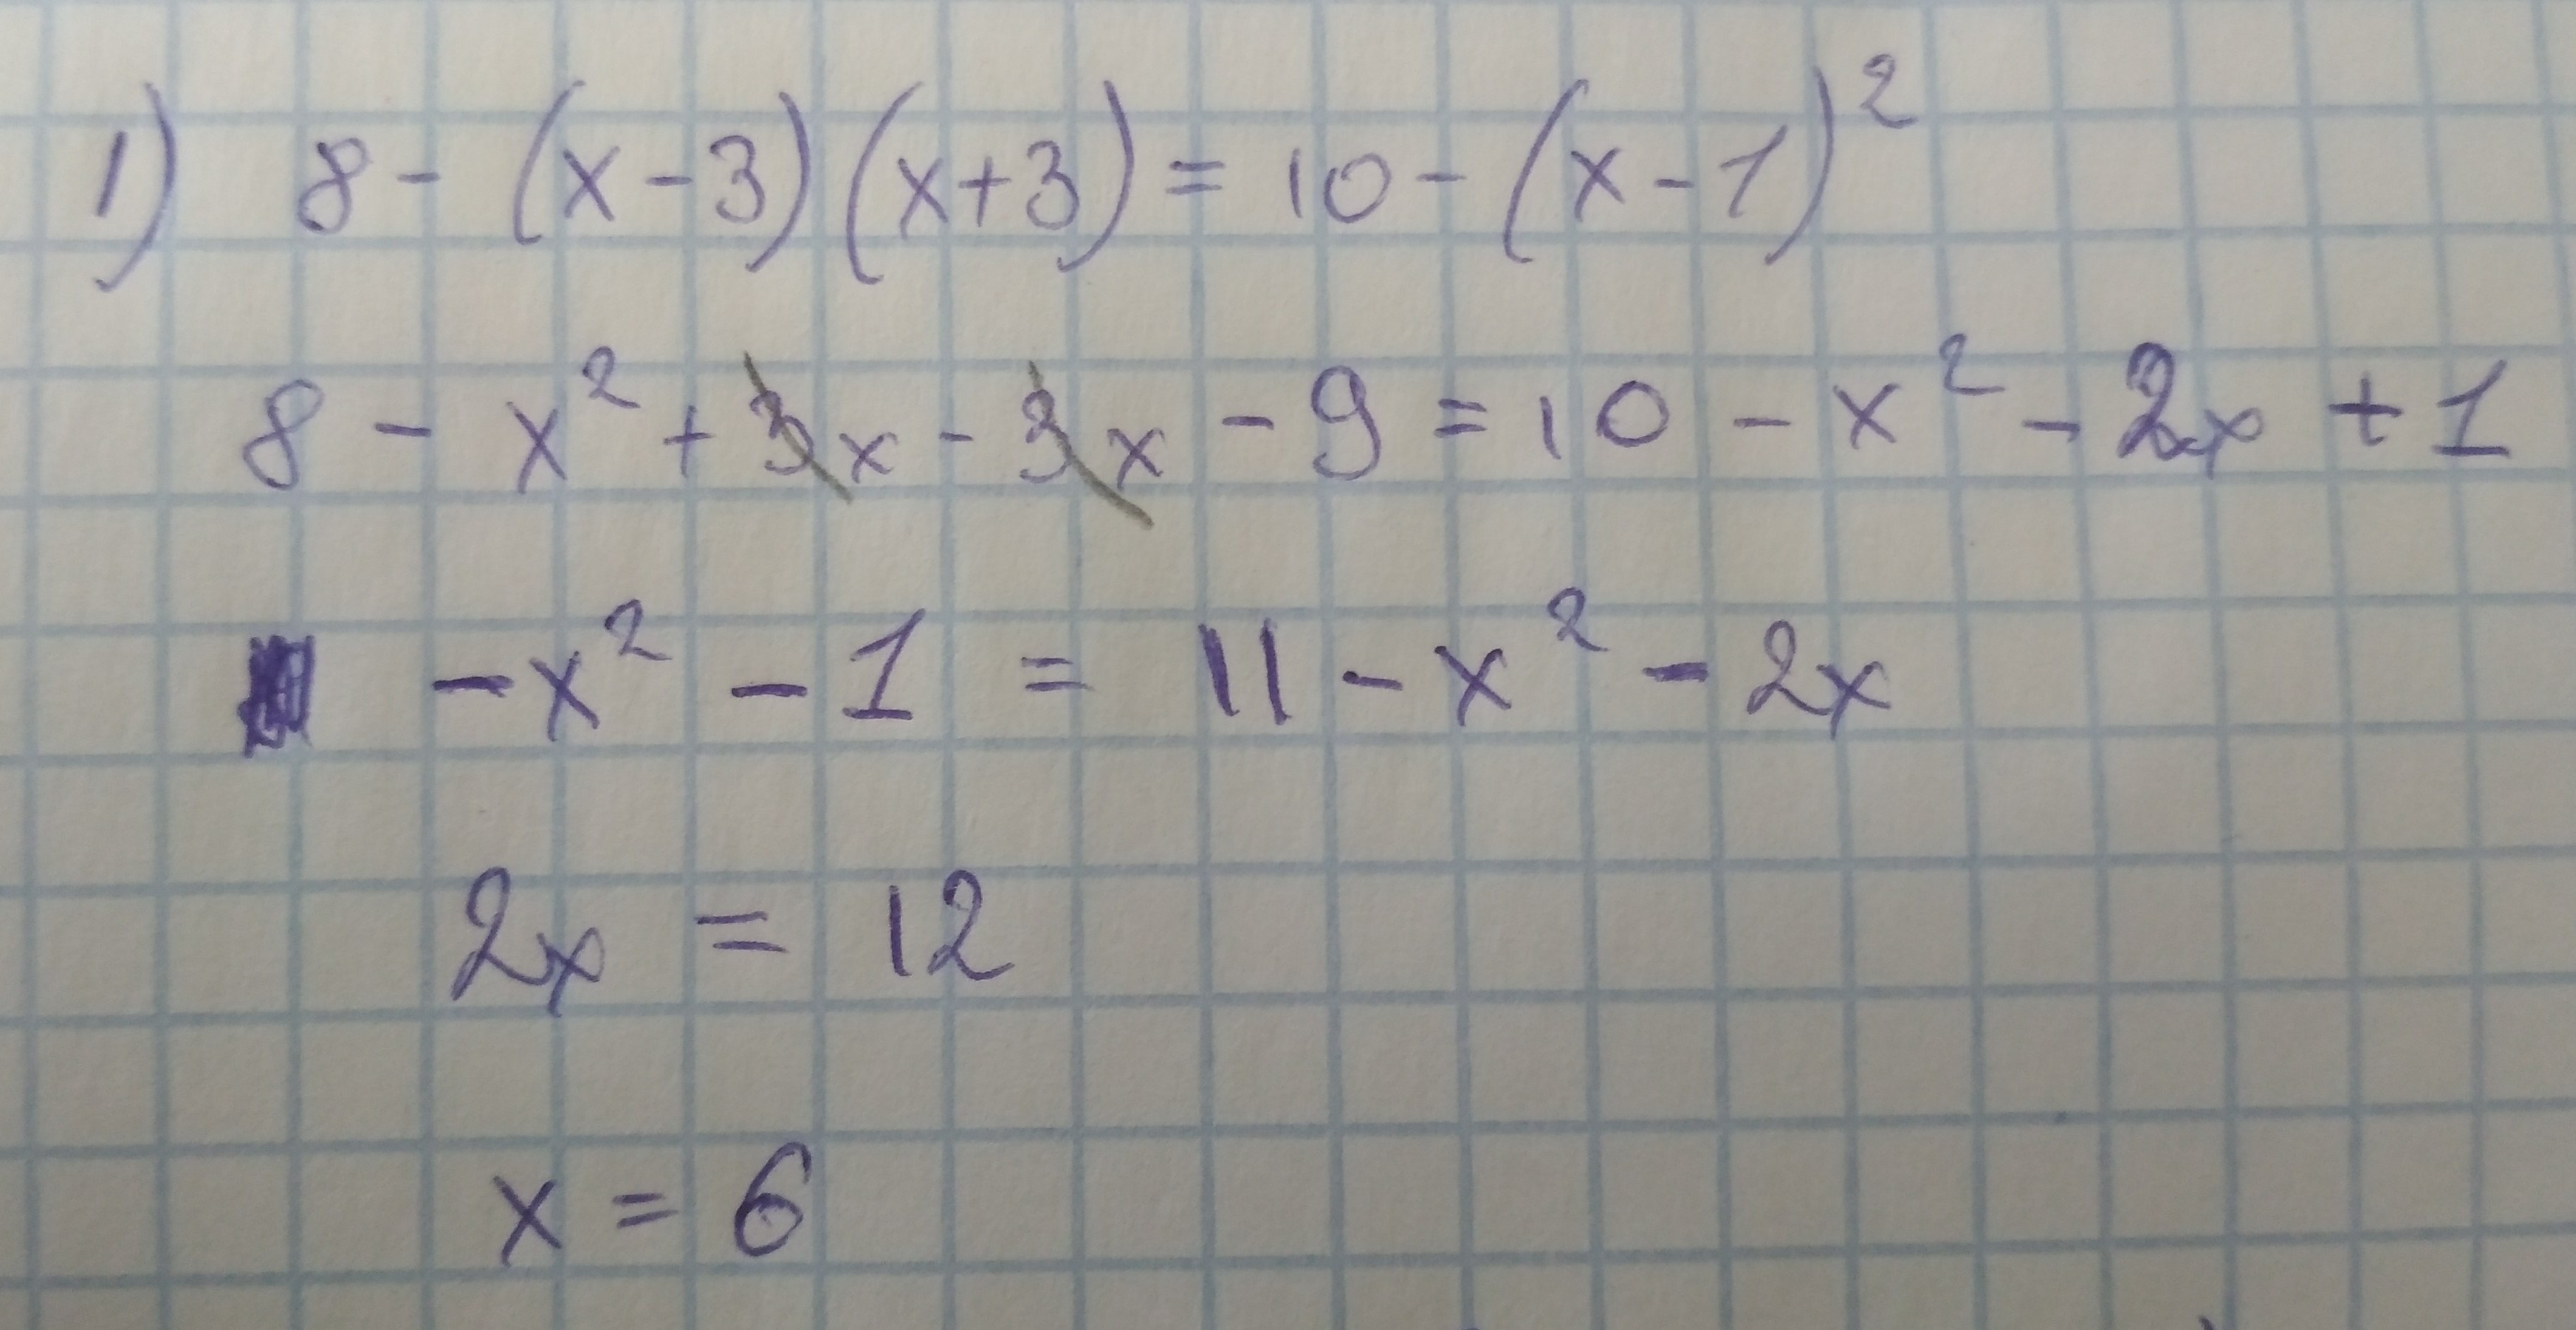 1) 8 - (x-3)(x+3) = 10 - (x-1)²
8 - x² + 3x - 3x - 9 = 10 - x² - 2x + 1
-x² - 1 = 11 - x² - 2x
2x = 12
x = 6